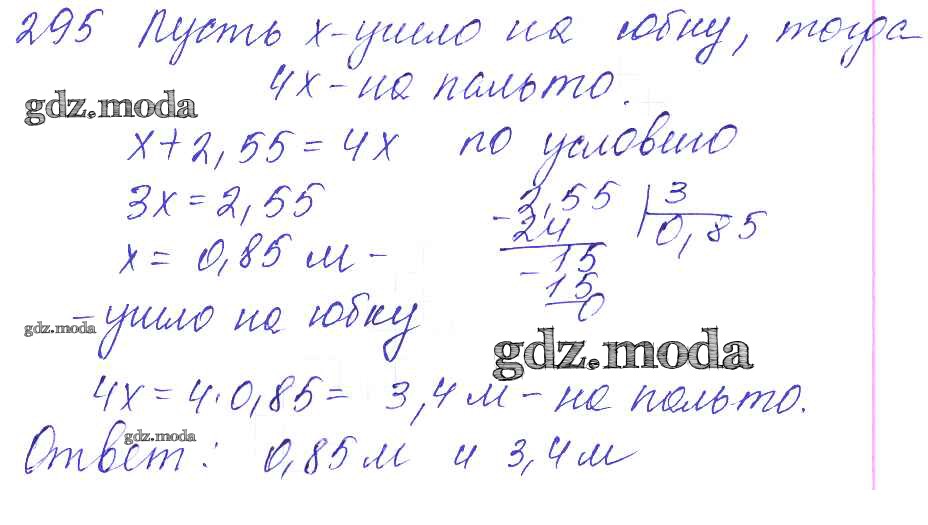 295 Пусть х - ушло на юбку, тогда
4х - на пальто.
gdz.moda
х + 2,55 = 4х по условию
3х = 2,55
2,55 | 3
- 24 0,85
х = 0,85 м -
15
- 15
0
- ушло на юбку
gdz.moda
gdz.moda
4х = 4·0,85 = 3,4 м - на пальто.
gdz.moda
Ответ: 0,85 м и 3,4 м